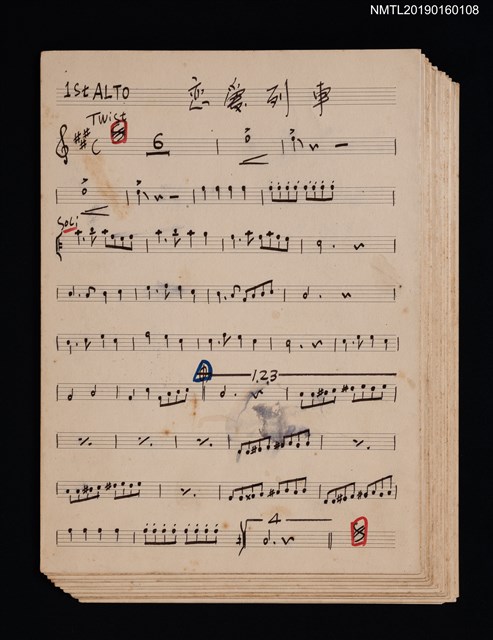 NMTL20190160108
1St ALTO 恋愛列車
Twist
C 6
Soli
1.2.3
4